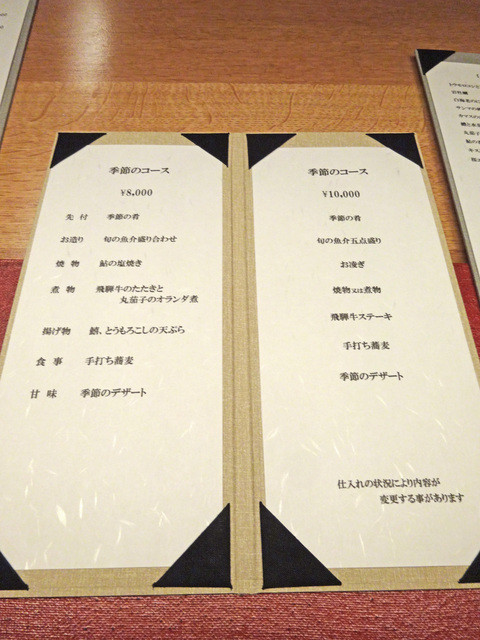 季節のコース
¥8,000
先付 季節の肴
お造り 旬の魚介盛り合わせ
焼物 鮎の塩焼き
煮物 飛騨牛のたたきと
丸茄子のオランダ煮
揚げ物 鱚、とうもろこしの天ぷら
食事 手打ち蕎麦
甘味 季節のデザート
季節のコース
¥10,000
季節の肴
旬の魚介五点盛り
お凌ぎ
焼物又は煮物
飛騨牛ステーキ
手打ち蕎麦
季節のデザート
仕入れの状況により内容が
変更する事があります